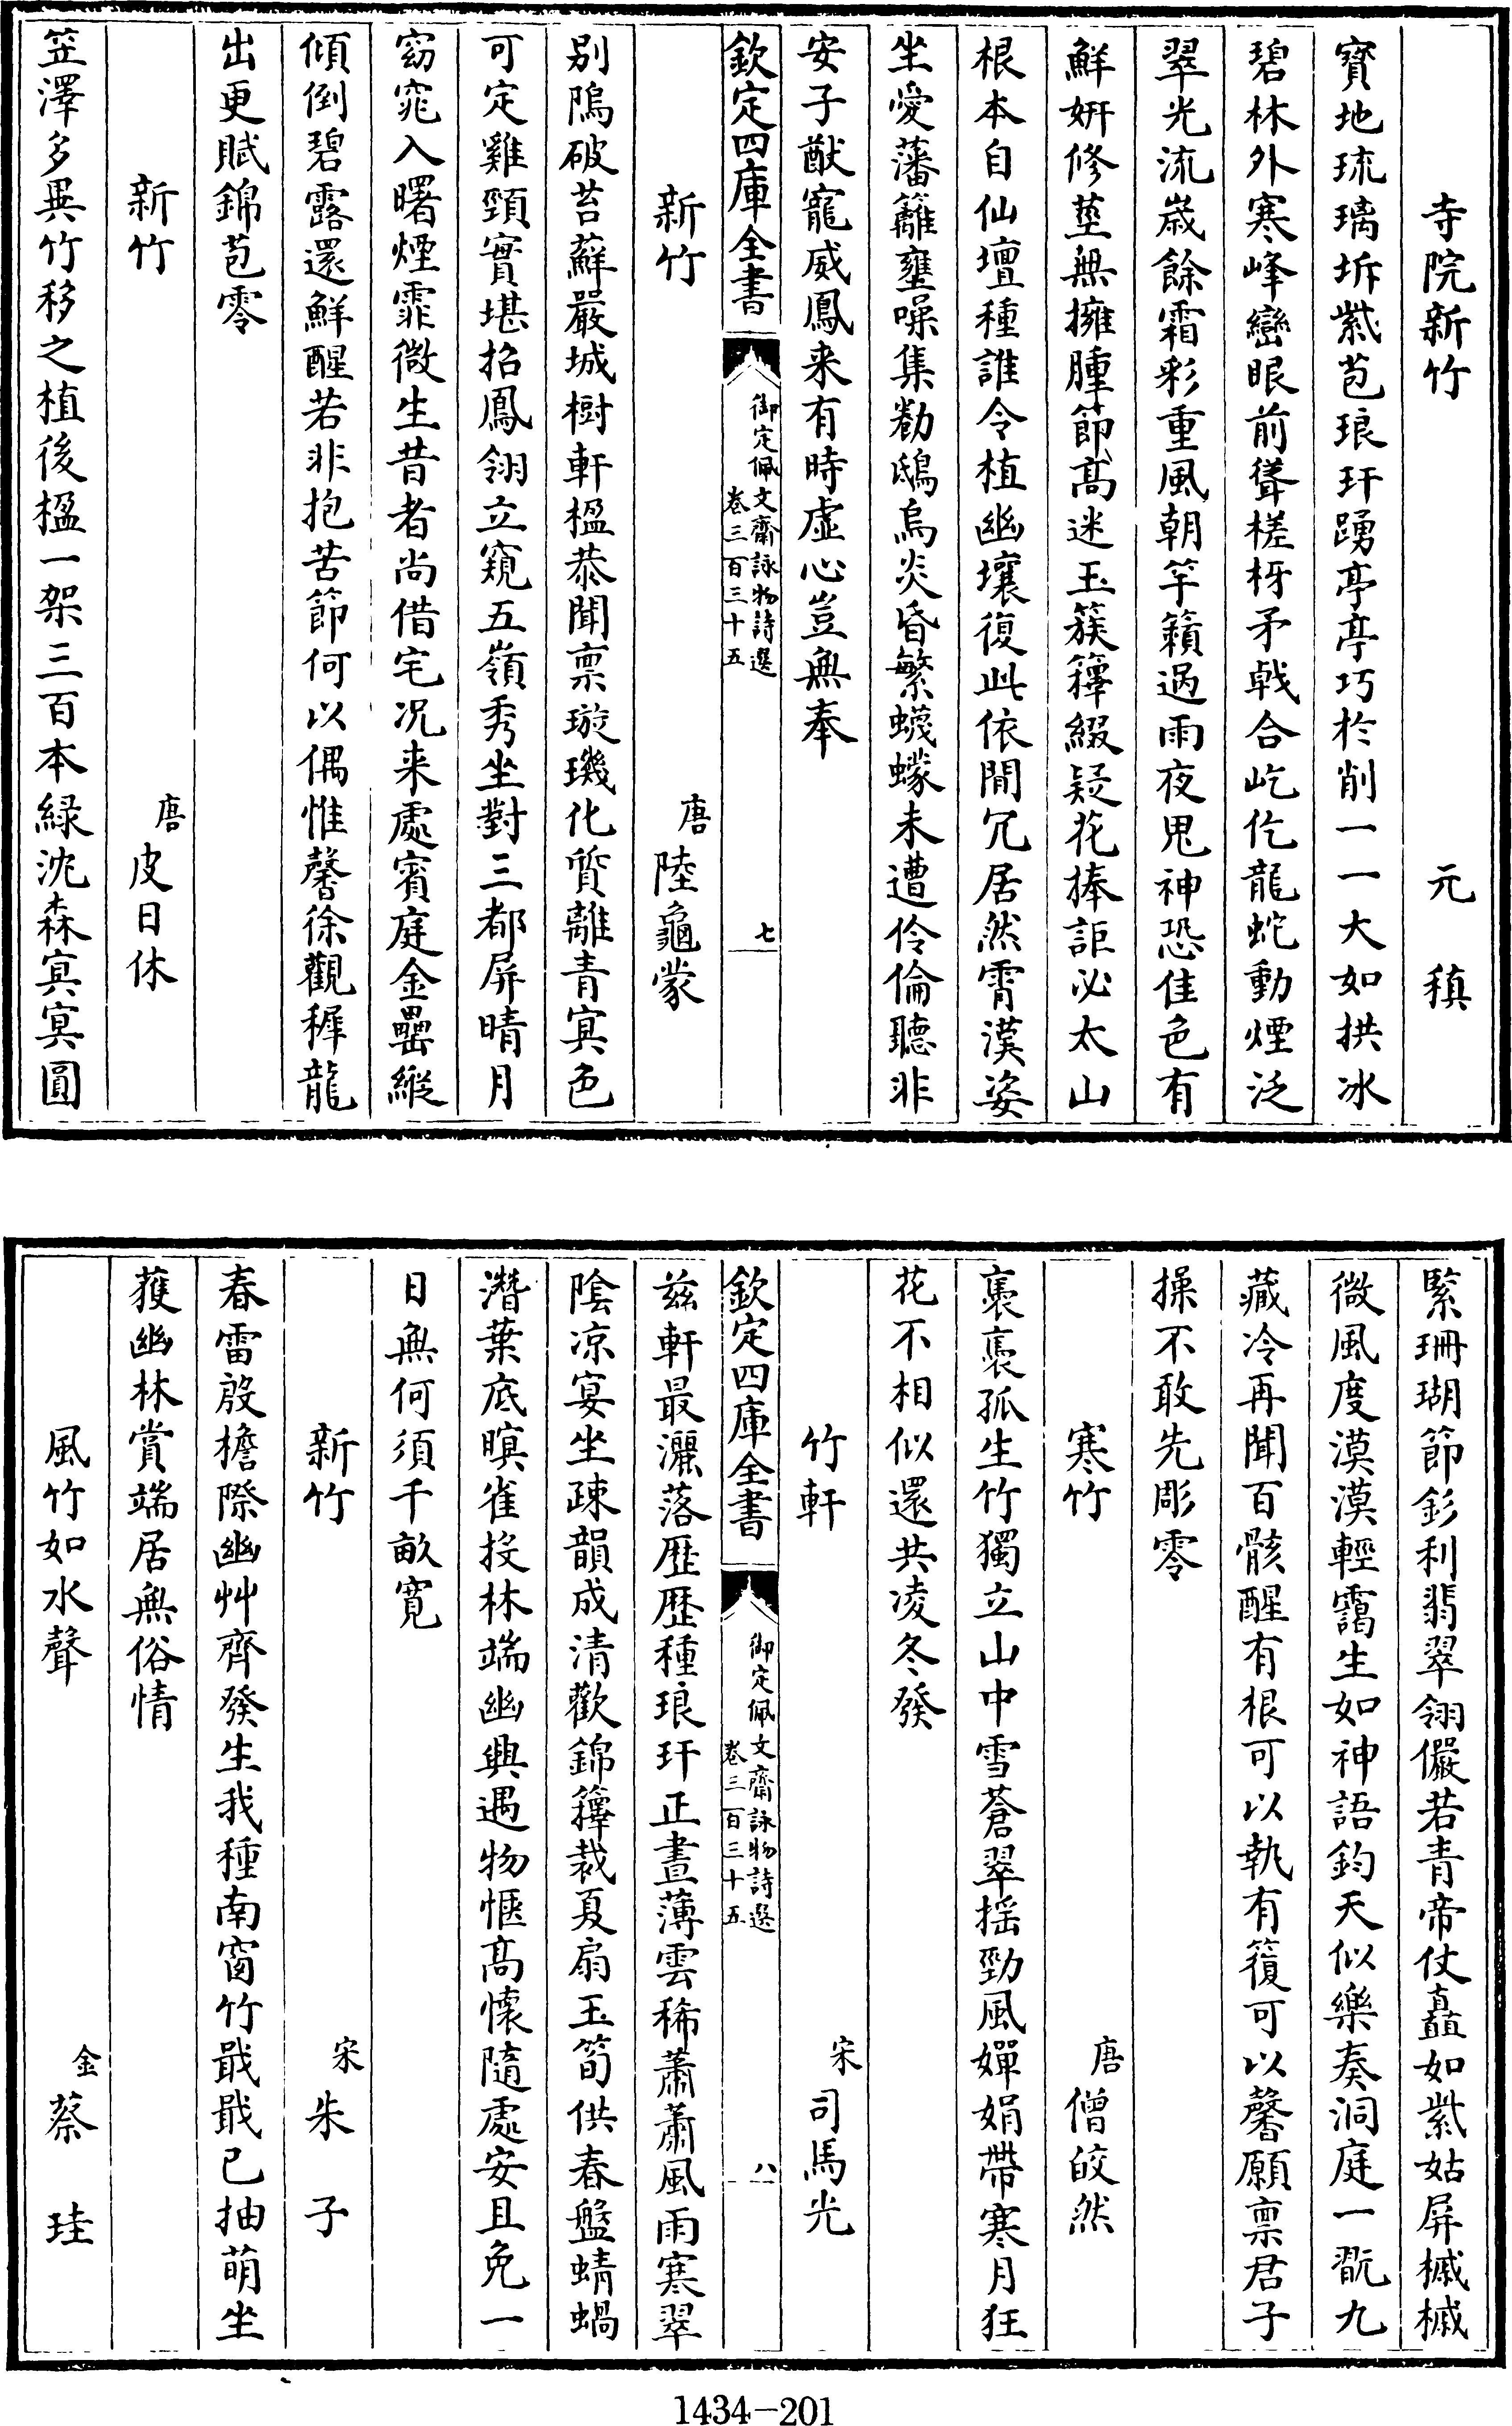 寺院新竹 元稹
寳地琉璃坼紫苞琅玕踴亭亭巧於削一一大如拱冰
碧林外寒峰巒眼前聳槎枒矛㦸合屹仡龍蛇動煙泛
翠光流嵗餘霜彩重風朝竽籟過雨夜鬼神恐佳色有
鮮妍修莖無擁腫節髙迷玉簇籜綴疑花捧詎必太山
根本自仙壇種誰令植幽壤復此依閒冗居然霄漢姿
坐愛藩籬壅噪集勌鴟烏炎昏繁蠛蠓未遭伶倫聽非
安子猷寵威鳳来有時虚心豈無奉
欽定四庫全書 御定佩文齋詠物詩選 卷三百三十五 七
新竹 唐陸龜蒙
别隖破苔蘚嚴城樹軒楹恭聞禀璇璣化質離青㝠色
可定雞頸實堪招鳳翎立窺五嶺秀坐對三都屏晴月
窈窕入曙煙霏微生昔者尚借宅况来處賓庭金罍縱
傾倒碧露還鮮醒若非抱苦節何以偶惟馨徐觀穉龍
出更賦錦苞零
新竹 唐皮日休
笠澤多異竹移之植後楹一架三百本緑沈森㝠㝠圓
緊珊瑚節釤利翡翠翎儼若青帝仗矗如紫姑屏槭槭
微風度漠漠輕靄生如神語鈞天似樂奏洞庭一翫九
藏冷再聞百骸醒有根可以執有𥴦可以馨願禀君子
操不敢先彫零
寒竹 唐僧皎然
裊裊孤生竹獨立山中雪蒼翠揺勁風嬋娟帶寒月狂
花不相似還共凌冬發
竹軒 宋司馬光
兹軒最灑落歴歴種琅玕正晝薄雲稀蕭蕭風雨寒翠
欽定四庫全書 御定佩文齋詠物詩選 卷三百三十五 八
陰凉宴坐疎韻成清歡錦籜裁夏扇玉筍供春盤蜻蝸
潛葉底暝雀投林端幽興遇物愜髙懷隨處安且免一
日無何須千畝寛
新竹 宋朱子
春雷殷檐際幽艸齊發生我種南窗竹戢戢已抽萌坐
獲幽林賞端居無俗情
風竹如水聲 金蔡珪
1434-201